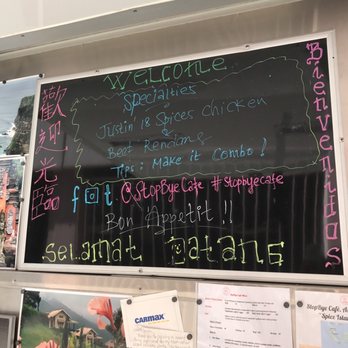 歡迎光臨
Welcome
Specialties
Justin 18 Spices Chicken
&
Beef Rendang
Tips: Make it Combo!
f t. @StopByeCafe #stopbyecafe
Bon Appetit!!
Selamat Datang
Bienvenidos
CARMAX
StopBye Café, A
Spice Isla